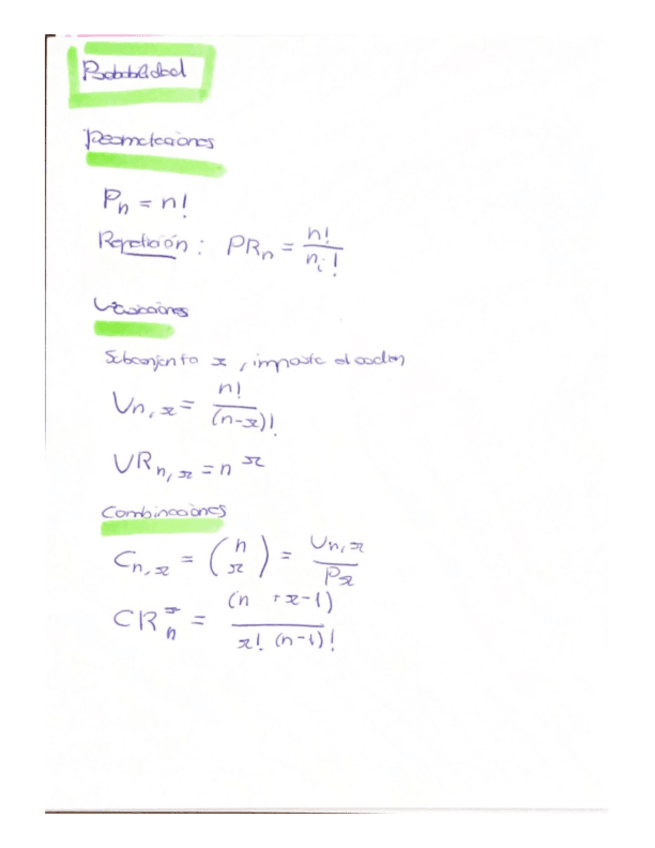 Probabilidad
Permutaciones
Pn = n!
Repetición : PRn = n! / ni!
Variaciones
Subconjunto x, importa el orden
Vn,x = n! / (n-x)!
VRn,x = n^x
Combinaciones
Cn,x = (n x) = Vn,x / Px
CR^x n = (n +x-1) / x! (n-1)!